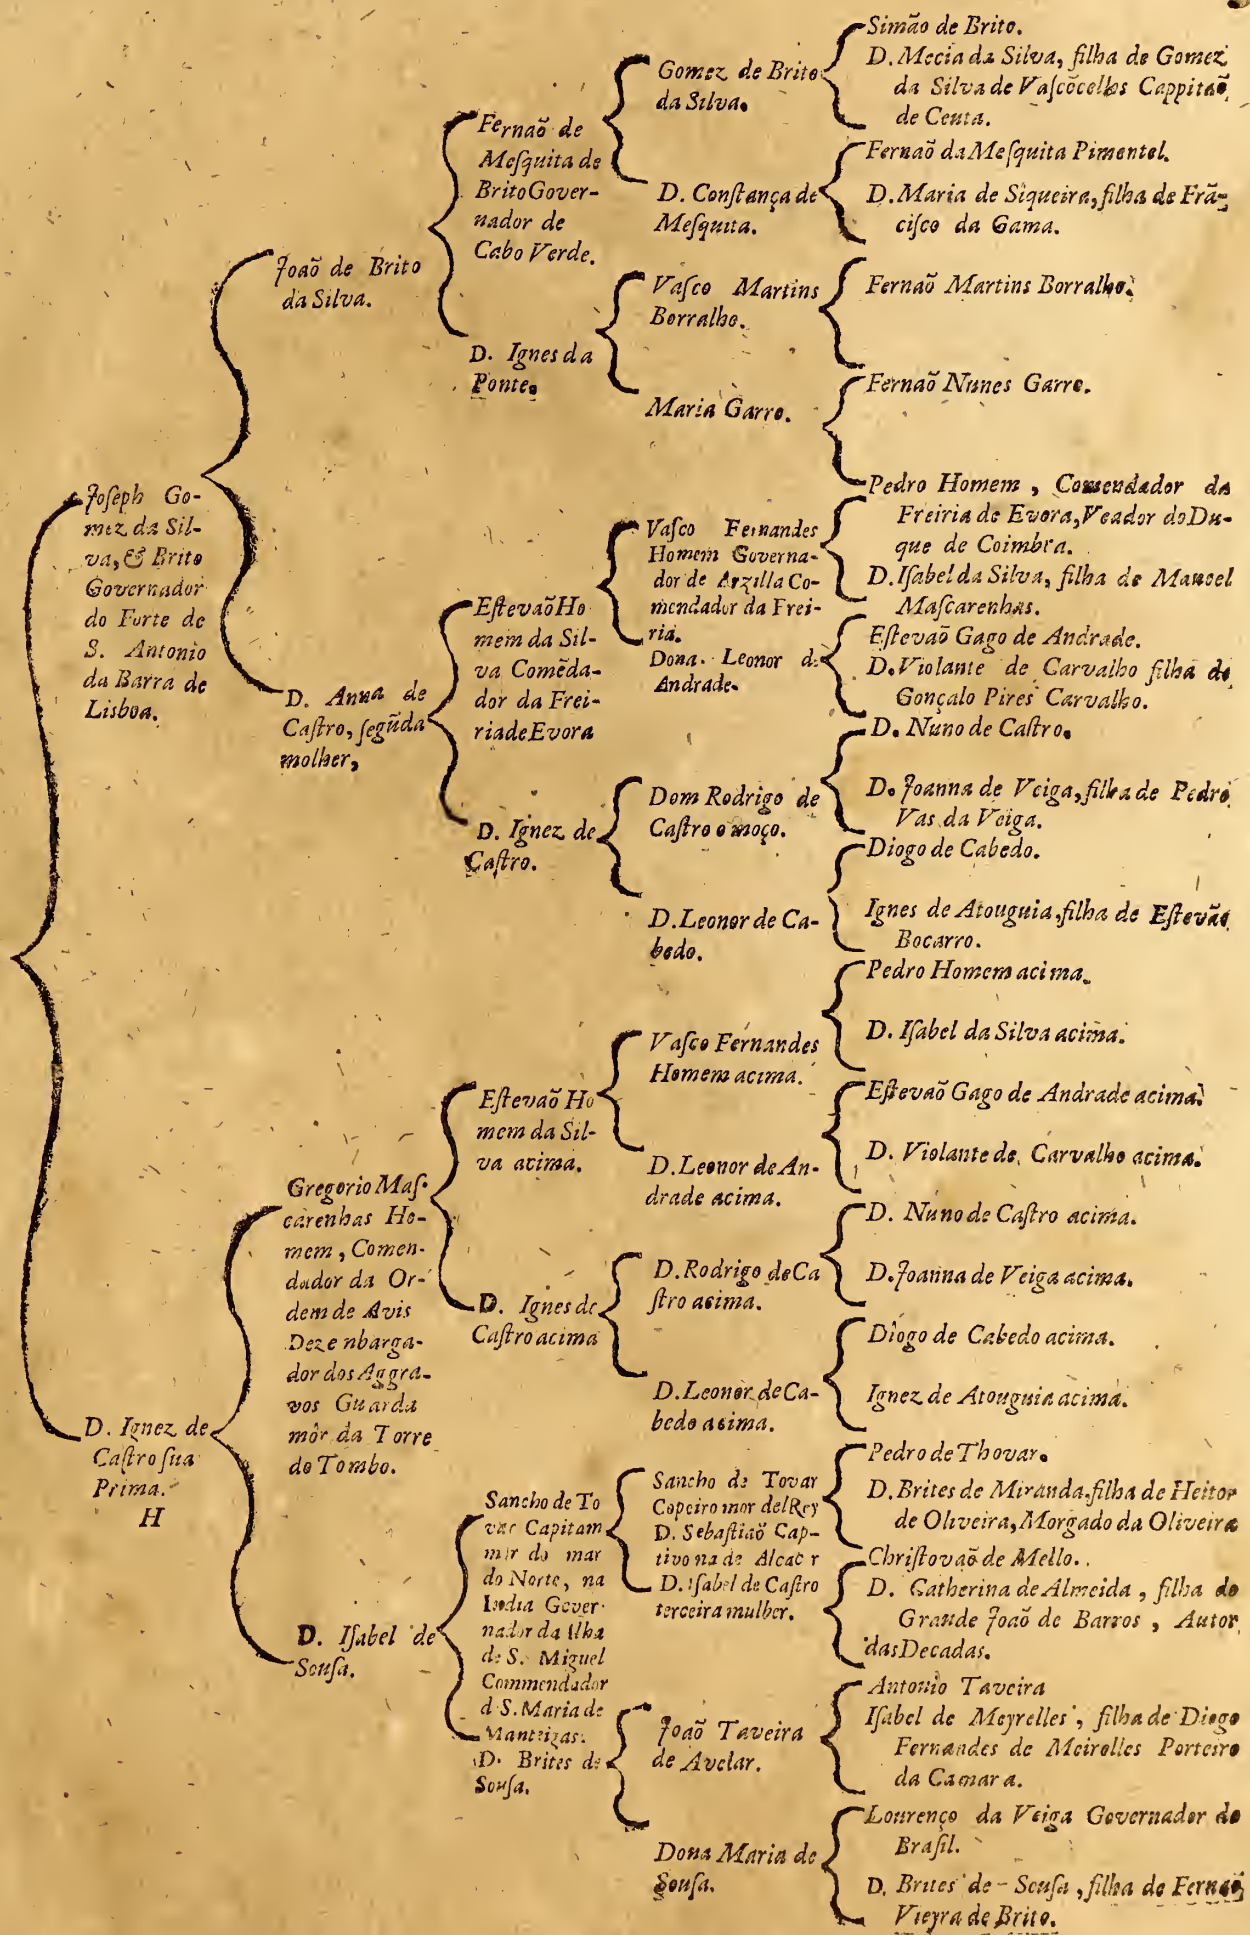 Joſeph Go-
mez da Sil-
va, & Brito
Governador
do Forte de
S. Antonio
da Barra de
Lisboa.
D. Ignez de
Caſtro ſua
Prima.
H
Joaõ de Brito
da Silva.
D. Anna de
Caſtro, ſegũda
molher,
Gregorio Maſ-
carenhas Ho-
mem, Comen-
dador da Or-
dem de Avis
Dezenbarga-
dor dos Aggra-
vos Guarda
mòr da Torre
do Tombo.
D. Iſabel de
Souſa.
Fernaõ de
Meſquita de
Brito Gover-
nador de
Cabo Verde.
D. Ignes da
Ponte.
Eſtevaõ Ho
mem da Sil-
va Comẽda-
dor da Frei-
ria de Evora
D. Ignez de
Caſtro.
Eſtevaõ Ho
mem da Sil-
va acima.
D. Ignes de
Caſtro acima
Sancho de To
var Capitam
mór do mar
do Norte, na
India Gover-
nador da Ilha
de S. Miguel
Commendador
d S. Maria de
Manteigas.
D. Brites de
Souſa.
Gomez de Brito
da Silva.
D. Conſtança de
Meſquita.
Vaſco Martins
Borralho.
Maria Garro.
Vaſco Fernandes
Homem Governa-
dor de Arzilla Co-
mendador da Frei-
ria.
Dona. Leonor de
Andrade.
Dom Rodrigo de
Caſtro o moço.
D. Leonor de Ca-
bedo.
Vaſco Fernandes
Homem acima.
D. Leonor de An-
drade acima.
D. Rodrigo de Ca
ſtro acima.
D. Leonor de Ca-
bedo acima.
Sancho de Tovar
Copeiro mor delRey
D. Sebaſtiaõ Cap-
tivo na de Alcac r
D. Iſabel de Caſtro
terceira mulher.
Joaõ Taveira
de Avelar.
Dona Maria de
Souſa.
Simão de Brito.
D. Mecia da Silva, filha de Gomez
da Silva de Vaſcõcellos Cappitaõ
de Ceuta.
Fernaõ da Meſquita Pimentel.
D. Maria de Siqueira, filha de Frã-
ciſco da Gama.
Fernaõ Martins Borralho.
Fernaõ Nunes Garro.
Pedro Homem, Comendador da
Freiria de Evora, Veador do Du-
que de Coimbra.
D. Iſabel da Silva, filha de Manoel
Maſcarenhas.
Eſtevaõ Gago de Andrade.
D. Violante de Carvalho filha de
Gonçalo Pires Carvalho.
D. Nuno de Caſtro.
D. Joanna de Veiga, filha de Pedro
Vas da Veiga.
Diogo de Cabedo.
Ignes de Atouguia, filha de Eſtevaõ
Bocarro.
Pedro Homem acima.
D. Iſabel da Silva acima.
Eſtevaõ Gago de Andrade acima.
D. Violante de Carvalho acima.
D. Nuno de Caſtro acima.
D. Joanna de Veiga acima.
Diogo de Cabedo acima.
Ignez de Atouguia acima.
Pedro de Thovar.
D. Brites de Miranda, filha de Heitor
de Oliveira, Morgado da Oliveira
Chriſtovaõ de Mello.
D. Catherina de Almeida, filha do
Grande Joaõ de Barros, Autor
das Decadas.
Antonio Taveira
Iſabel de Meyrelles, filha de Diogo
Fernandes de Meirelles Porteiro
da Camara.
Lourenço da Veiga Governador do
Braſil.
D. Brites de-Souſa, filha de Fernaõ
Vieyra de Brito.